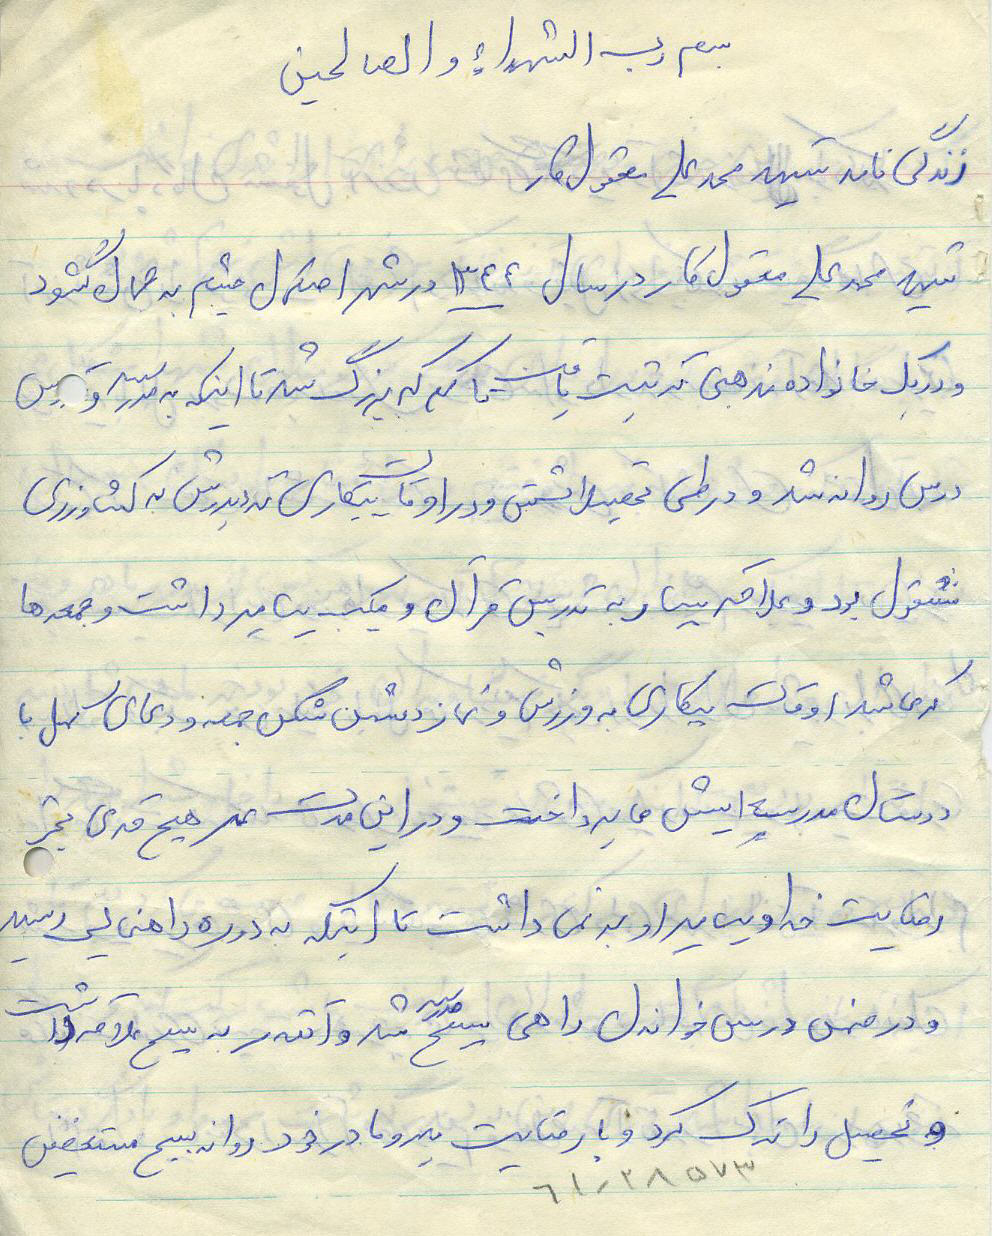 بسم رب الشهداء و الصالحین
زندگی نامه شهید محمد علی معقول کار
شهید محمد علی معقول کار در سال ۱۳۴۴ در شهر چشم به جهان گشود
و در یک خانواده مذهبی تربیت یافت تا کم کم بزرگ شد تا اینکه به مدرسه و
درس روانه شد و در طی تحصیلاتش و در اوقات بیکاری نزد پدرش به کشاورزی
مشغول بود و علاقه بسیار به تدریس قرآن و مکتب پیامبر داشت و جمعه ها
که می شد اوقات بیکاری به ورزش و نماز دشمن شکن جمعه و دعای کمیل با
دوستان مدرسه ایش می پرداخت و در این مدت عمر هیچ قدمی بجز
رضایت خدا و پیامبر او بر نمی داشت تا اینکه به دوره راهنمایی رسید
و در ضمن درس خواندن راهی بسیج مدرسه شد و آنقدر به بسیج علاقه داشت
و تحصیل را ترک کرد و با رضایت پدر و مادر خود روانه بسیج مستضعفین
۶۱۰۲۸۵۷۳